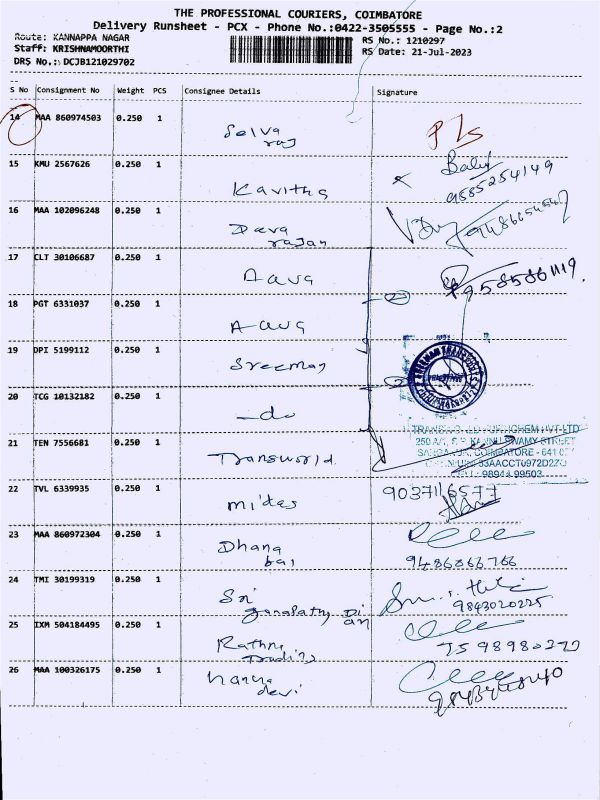 THE PROFESSIONAL COURIERS, COIMBATORE
Delivery Runsheet - PCX - Phone No.:0422-3505555 - Page No.:2
Route: KANNAPPA NAGAR
RS No.: 1210297
Staff: KRISHNAMOORTHI
RS Date: 21-Jul-2023
DRS No.: DCJB121029702
S No Consignment No Weight PCS Consignee Details Signature
14 MAA 860974503 0.250 1 Selva
raj
15 KMU 2567626 0.250 1 Kavitha
9585254149
16 MAA 102096248 0.250 1 Deva
rajan
17 CLT 30106687 0.250 1 Aava
9585861119.
18 PGT 6331037 0.250 1 Aava
19 DPI 5199112 0.250 1 Sreeman
20 TCG 10132182 0.250 1 -do
21 TEN 7556681 0.250 1 Transworld
250 COIMBATORE - 641
33AACCT0972D2ZO
98944 99503
22 TVL 6339935 0.250 1 Midas
9037116577
23 MAA 860972304 0.250 1 Dhana
bai
9486866766
24 TMI 30199319 0.250 1 Sri
ganapathy
9843020225
25 IXM 504184495 0.250 1 Rathna
Trading
7598980272
26 MAA 100326175 0.250 1 Nanya
devi